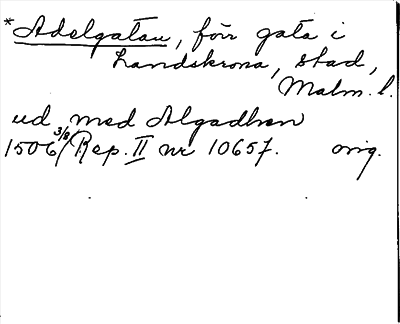 *Adelgatan, förr gata i
Landskrona, stad,
Malm. l.
ud med Algadhen
1506 3/8/ Rep. II nr 10657. orig.